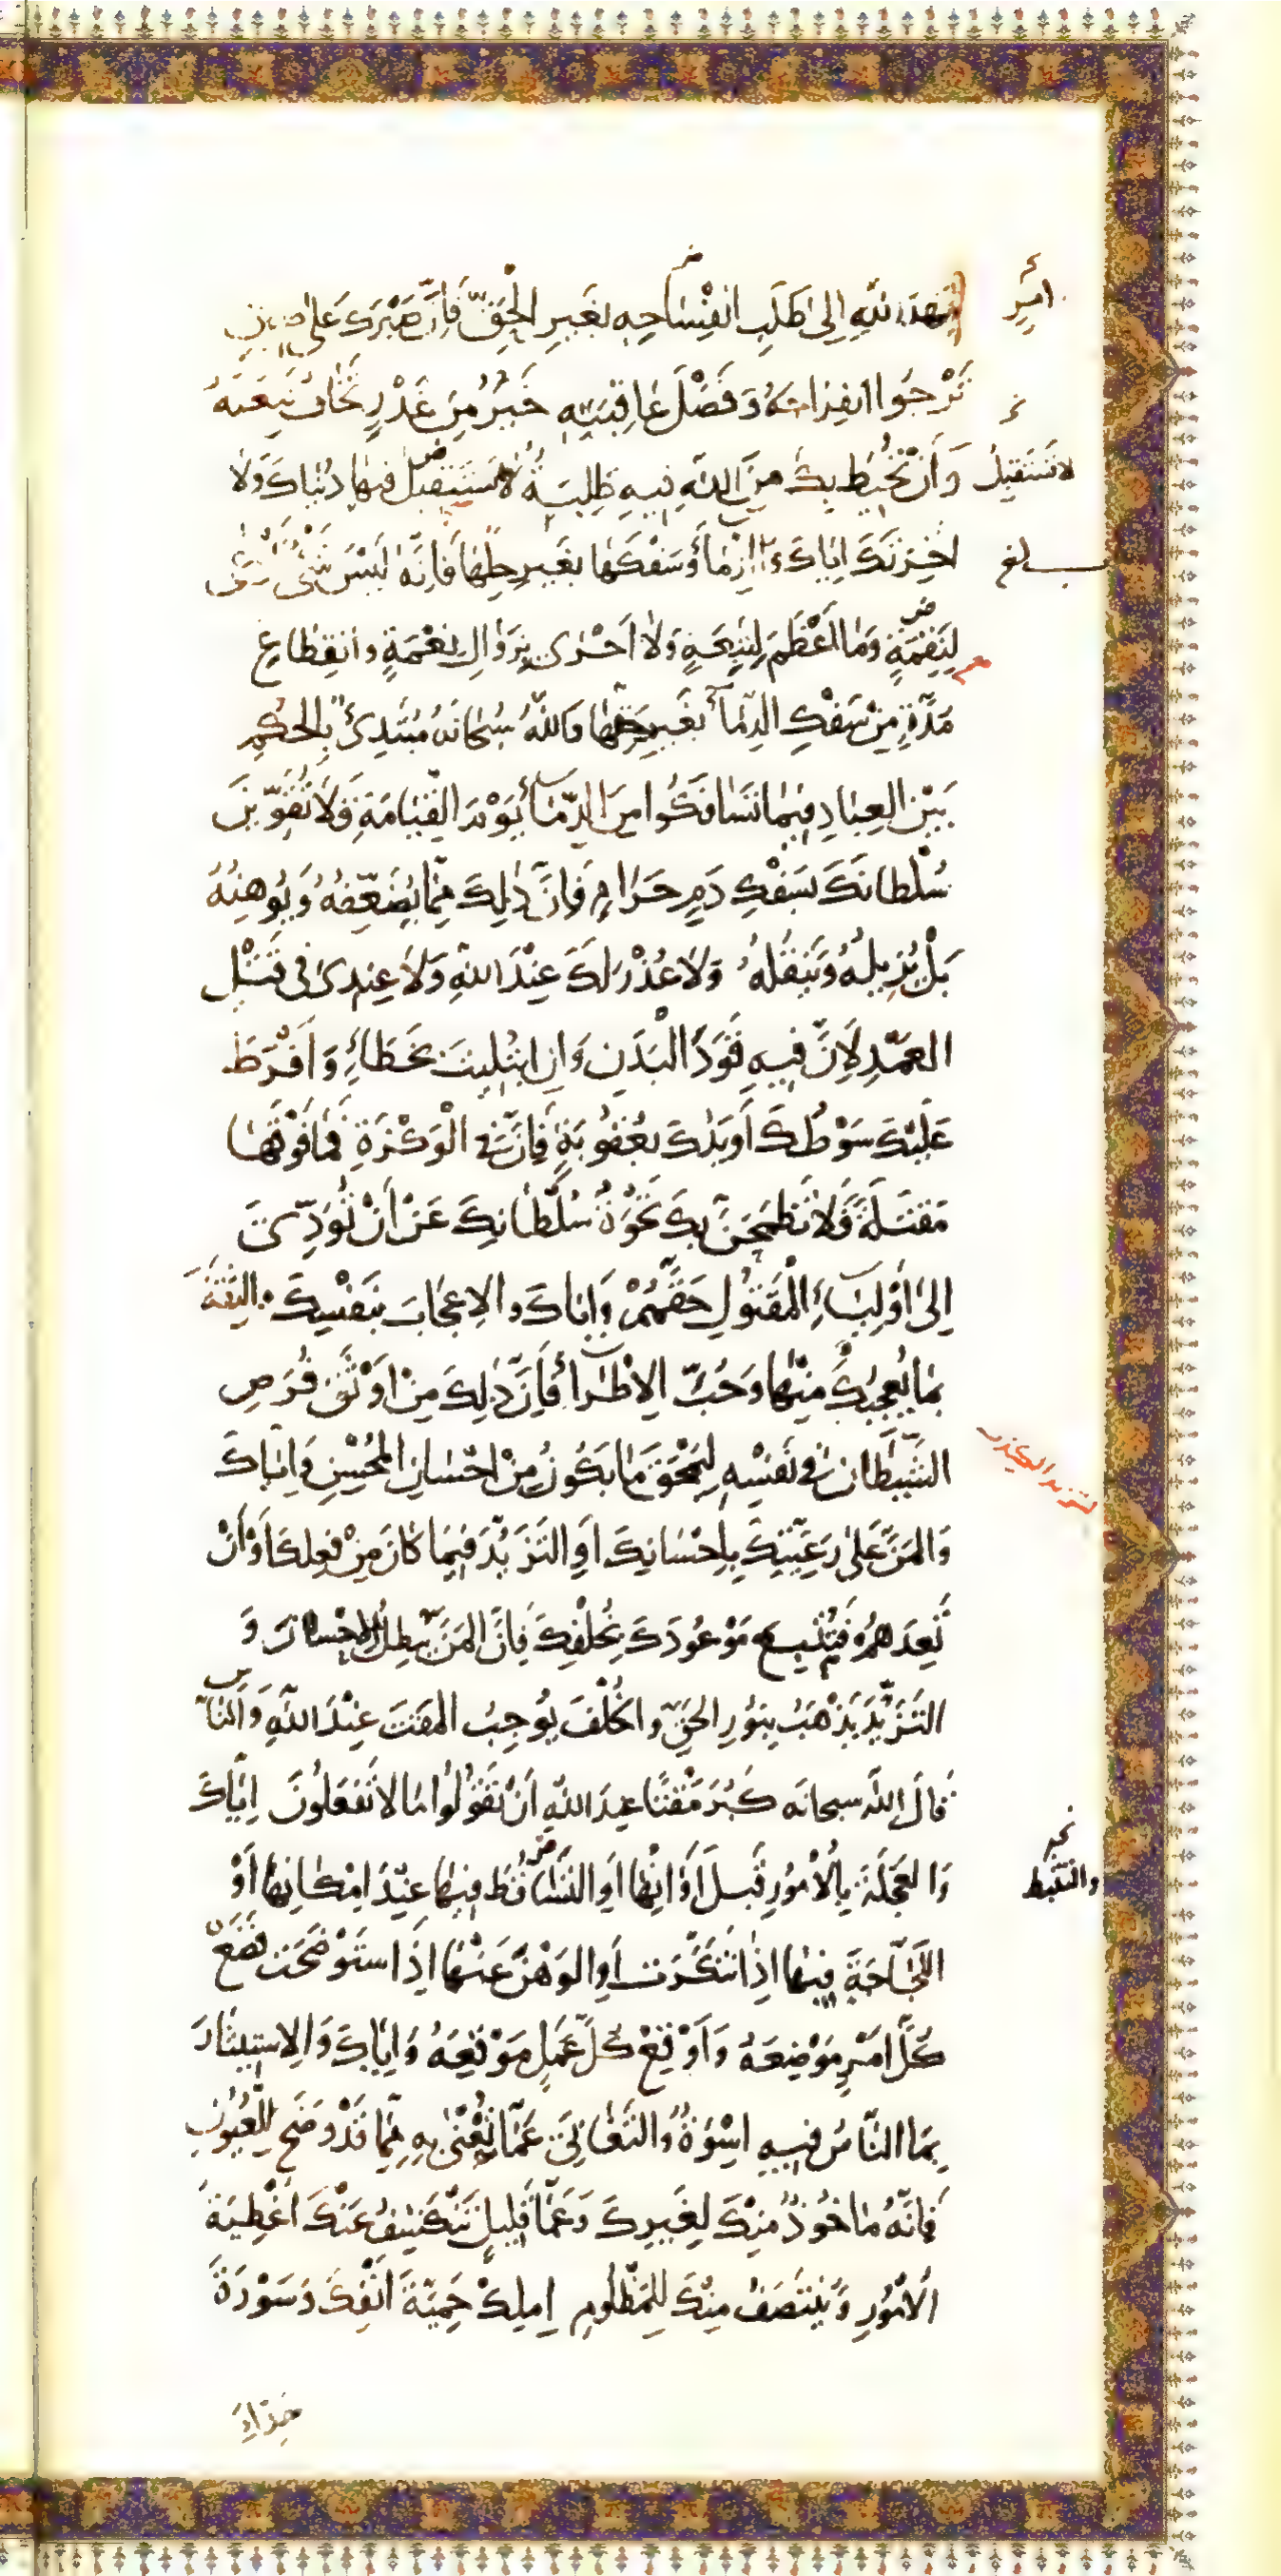 عهد الله الى طلب انفساحه بغير الحق فان صبرك على ضيق
امر
ترجوا انفراجه وفضل عاقبته خير من غدر تخاف تبعته
وان تحيط بك من الله فيه طلبة لا تستقيل فيها دنياك ولا
لا تستقيل
اخرتك اياك والدماء وسفكها بغير حلها فانه ليس شئ
بلغ
لنقمة وما اعظم لتبعة ولا احرى بزوال نعمة وانقطاع
مدة من سفك الدماء بغير حقها والله سبحانه مبتدئ بالحكم
بين العباد فيما تسافكوا من الدماء يوم القيامة فلا تقوين
سلطانك بسفك دم حرام فان ذلك مما يضعفه ويوهنه
بل يزيله وينقله ولا عذر لك عند الله ولا عندى فى قتل
العمد لان فيه قود البدن وان ابتليت بخطاء وافرط
عليك سوطك او يدك بعقوبة فان فى الوكزة فما فوقها
مقتلة فلا تطمحن بك نخوة سلطانك عن ان تؤدى
الى اولياء المقتول حقهم واياك والاعجاب بنفسك والثقة
بما يعجبك منها وحب الاطراء فان ذلك من اوثق فرص
الشيطان فى نفسه ليمحق ما يكون من احسان المحسن واياك
التزيد الكذب
والمن على رعيتك باحسانك او التزيد فيما كان من فعلك او ان
تعدهم فتتبع موعودك بخلفك فان المن يبطل الاحسان و
التزيد يذهب بنور الحق والخلف يوجب المقت عند الله والناس
قال الله سبحانه كبر مقتا عند الله ان تقولوا ما لا تفعلون اياك
والعجلة بالامور قبل اوانها او التساقط فيها عند امكانها او
والتثبط
اللجاجة فيها اذا تنكرت او الوهن عنها اذا استوضحت فضع
كل امر موضعه واوقع كل عمل موقعه واياك والاستيثار
بما الناس فيه اسوة والتغابى عما تعنى به مما قد وضح للعيون
فانه ماخوذ منك لغيرك وعما قليل تنكشف عنك اغطية
الامور وينتصف منك للمظلوم املك حمية انفك وسورة